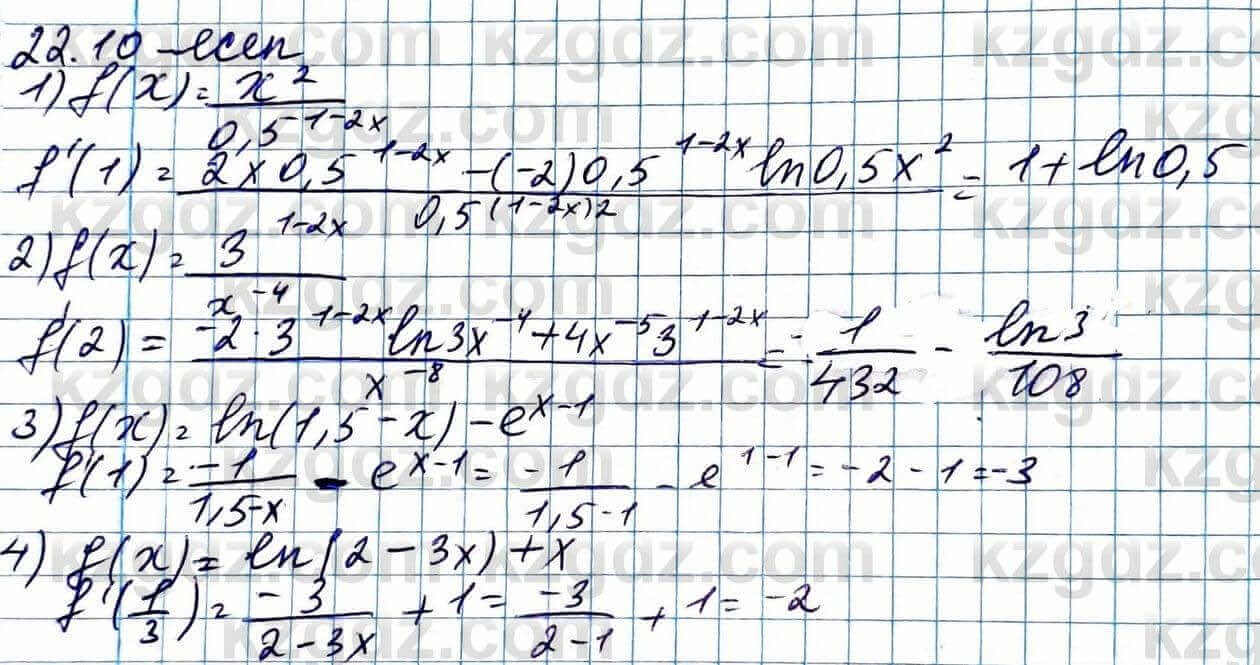 22.10-есеп
1) f(x) = x² / 0,5^(1-2x)
f'(1) = (2x 0,5^(1-2x) - (-2)0,5^(1-2x) ln0,5x²) / 0,5^((1-2x)2) = 1 + ln0,5
2) f(x) = 3^(1-2x) / x^(-4)
f'(2) = (-2·3^(1-2x) ln3x^(-4) + 4x^(-5)3^(1-2x)) / x^(-8) = 1/432 - ln3/108
3) f(x) = ln(1,5-x) - e^(x-1)
f'(1) = -1/(1,5-x) - e^(x-1) = -1/(1,5-1) - e^(1-1) = -2-1=-3
4) f(x) = ln(2-3x)+x
f'(1/3) = -3/(2-3x) + 1 = -3/(2-1) + 1 = -2
kzgdz.com